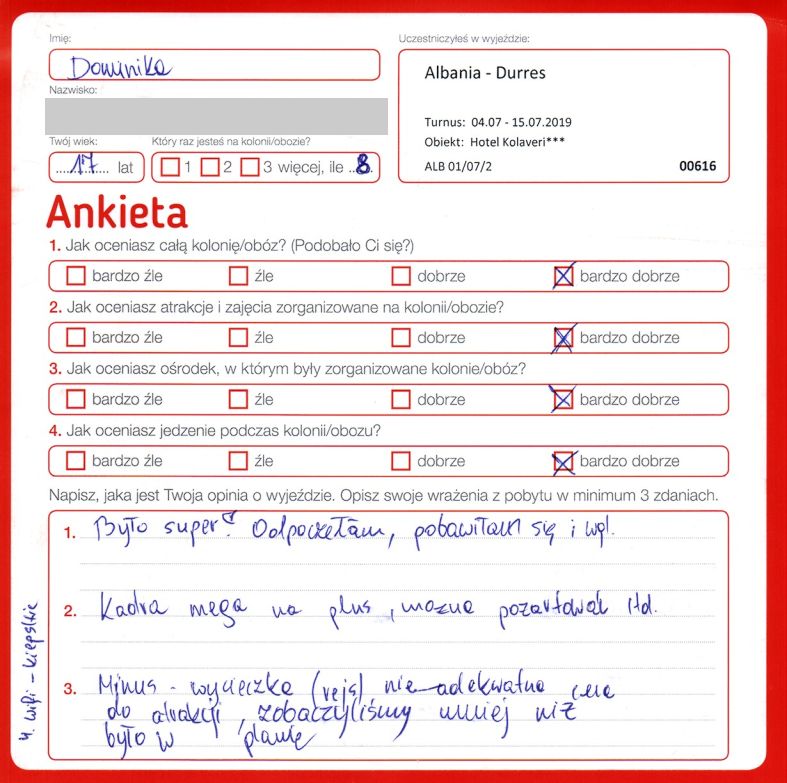 Imię:
Dominika
Nazwisko:
Twój wiek:
17 lat
Który raz jesteś na kolonii/obozie?
1 2 3 więcej, ile 8
Uczestniczyłeś w wyjeździe:
Albania - Durres
Turnus: 04.07 - 15.07.2019
Obiekt: Hotel Kolaveri***
ALB 01/07/2 00616
Ankieta
1. Jak oceniasz całą kolonię/obóz? (Podobało Ci się?)
bardzo źle źle dobrze bardzo dobrze
2. Jak oceniasz atrakcje i zajęcia zorganizowane na kolonii/obozie?
bardzo źle źle dobrze bardzo dobrze
3. Jak oceniasz ośrodek, w którym były zorganizowane kolonie/obóz?
bardzo źle źle dobrze bardzo dobrze
4. Jak oceniasz jedzenie podczas kolonii/obozu?
bardzo źle źle dobrze bardzo dobrze
Napisz, jaka jest Twoja opinia o wyjeździe. Opisz swoje wrażenia z pobytu w minimum 3 zdaniach.
1. Było super! Odpoczęłam, pobawiłam się i wgl.
2. Kadra mega na plus, można pożartować itd.
3. Minus - wycieczka (rejs), nie adekwatna cena
do atrakcji, zobaczyliśmy mniej niż
było w planie
4. wifi - kiepskie